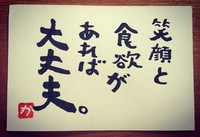 笑顔と
食欲が
あれば
大丈夫。
か